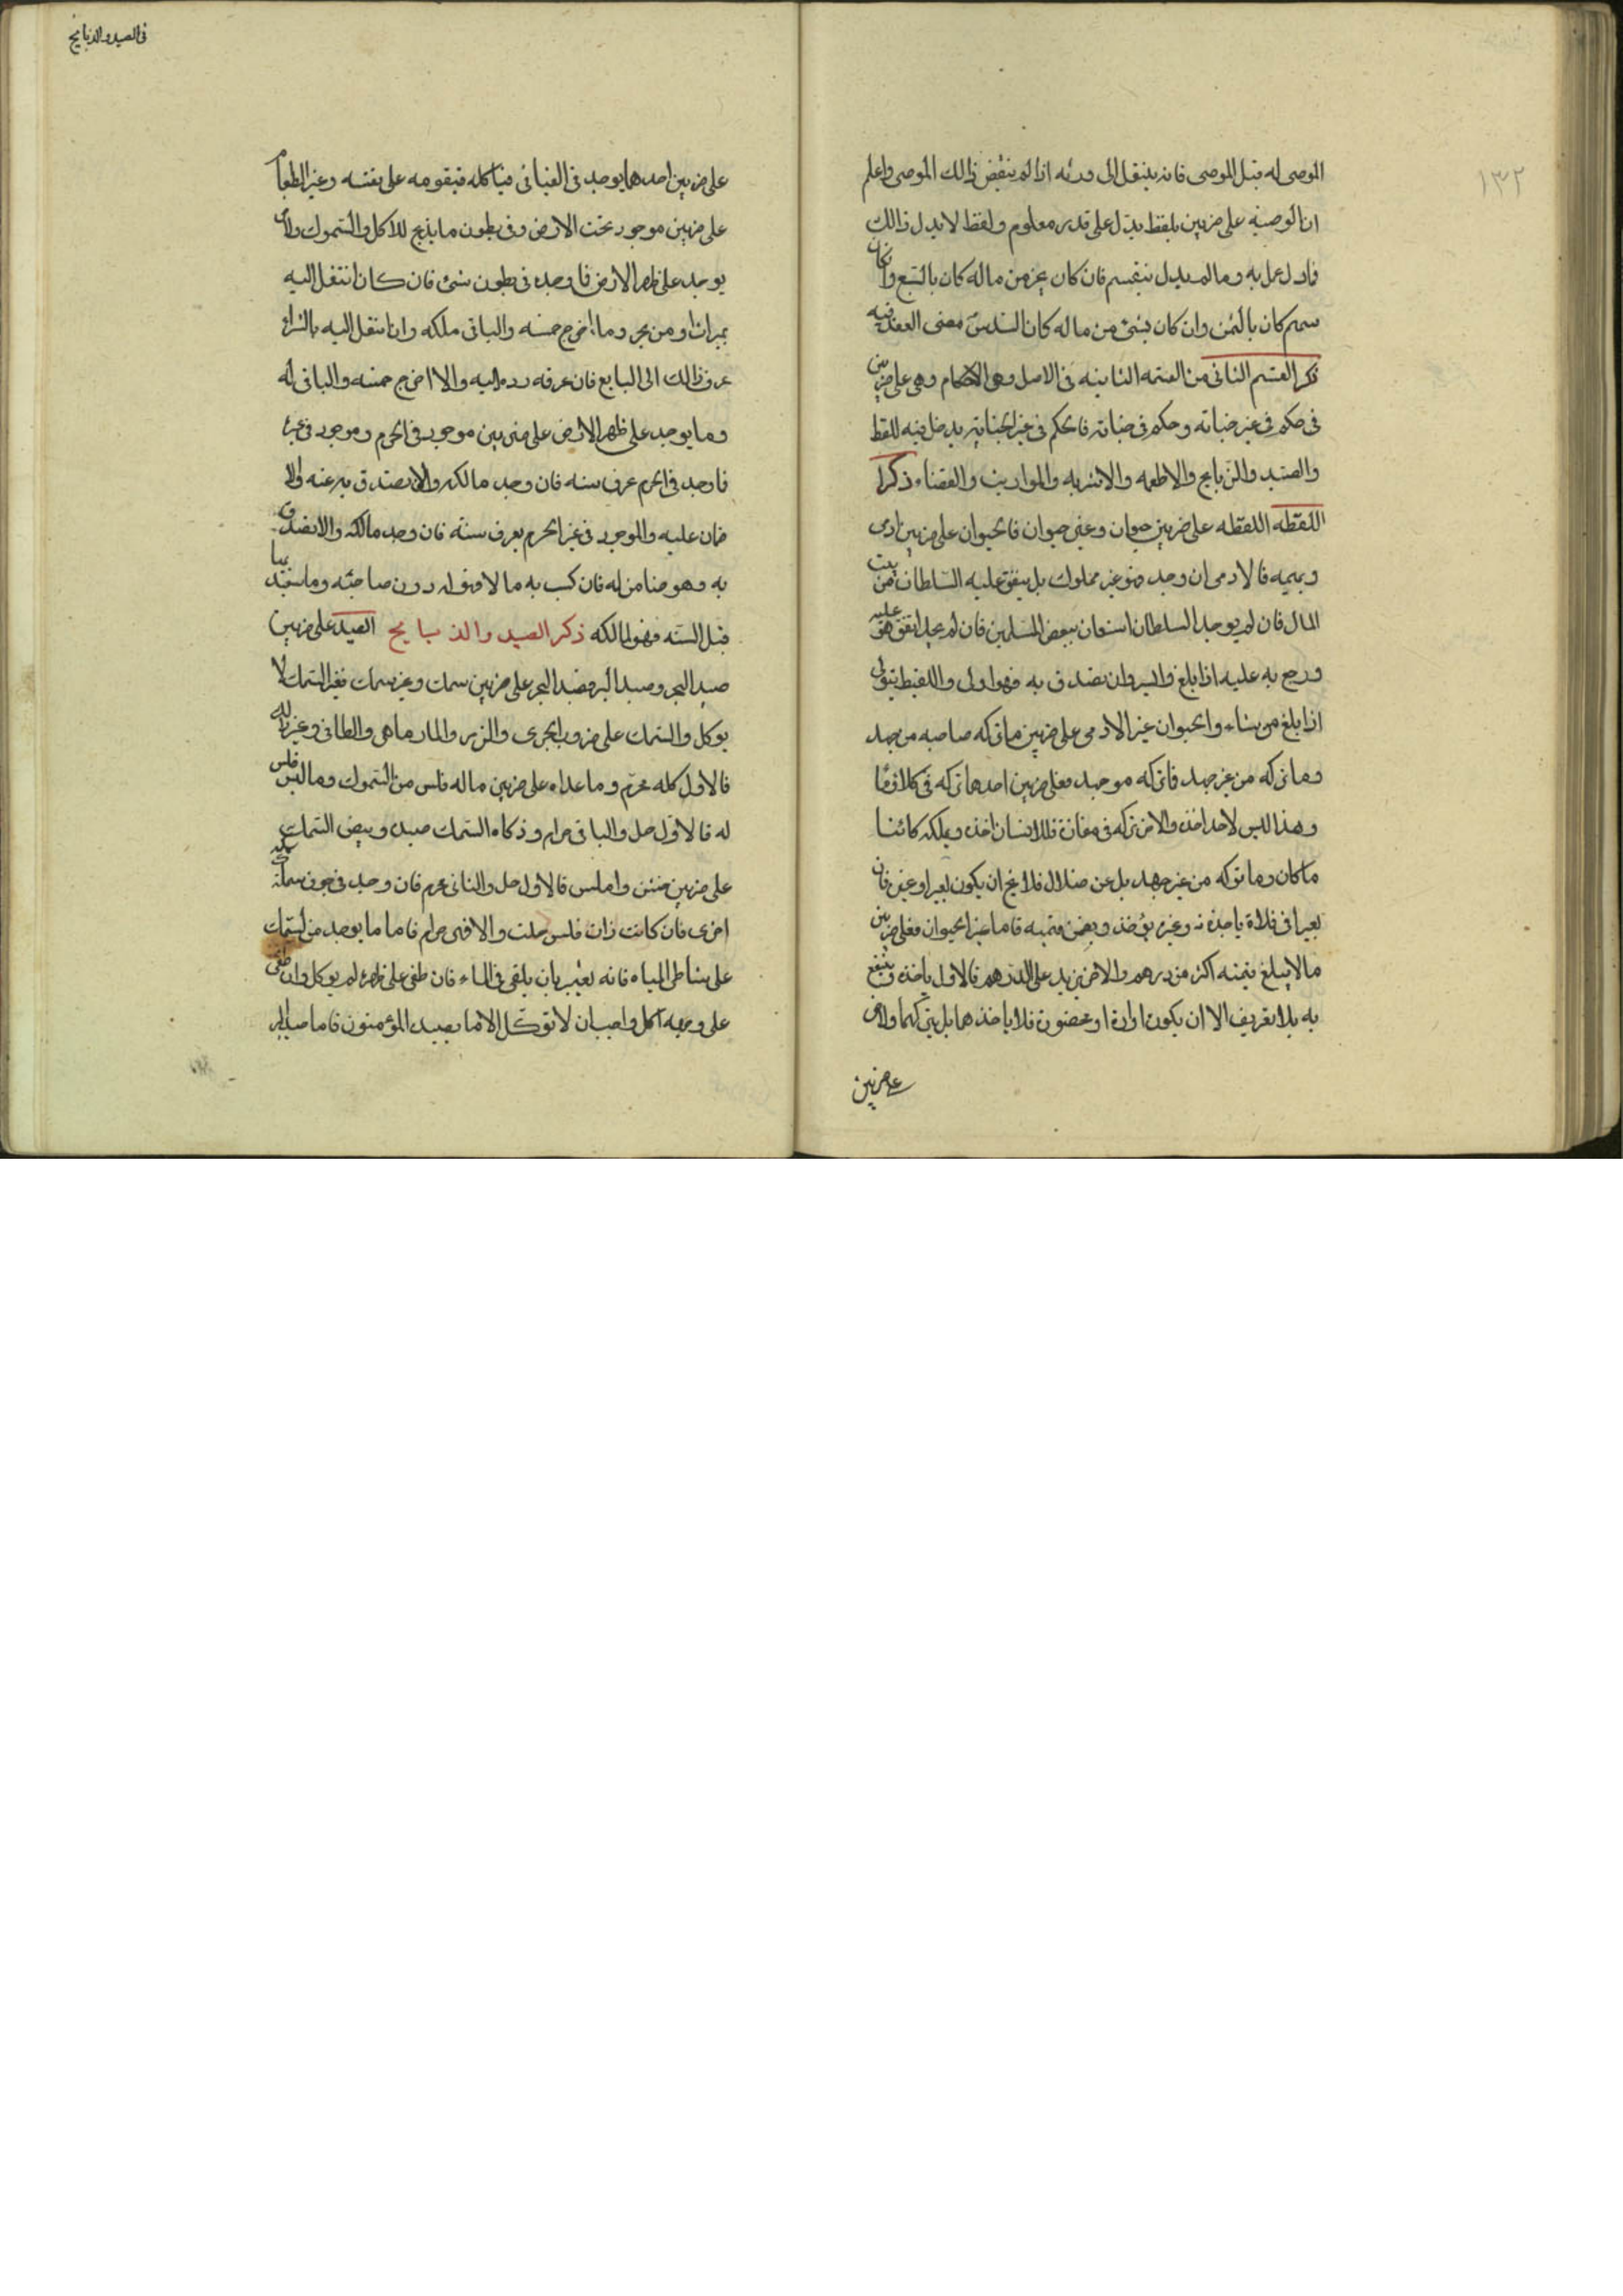 ١٣٢
الموصى له قبل الموصى فانه ينتقل الى ورثه اذا لم ينقض ذالك الموصى واعلم
ان الوصيه على ضربين بلفظ يدل على قدر معلوم ولفظ لا يدل ذالك
فادل عمل به وما لم يدل ينقسم فان كان بجزء من ماله كان بالسبع وان كان
سهم كان بالثمن وان كان بشئ من ماله كان السدس
ذكر القسم الثانى من القسمه الثانيه فى الاصل وهو الاحكام وهى على ضربين
فى حكم فى غير جنايه وحكم فى جنايه فالحكم فى غير الجنايه يدخل فيه اللقط
والصيد والذبايح والاطعمه والاشربه والمواريث والقضاء ذكر
اللقطه اللقطه على ضربين حيوان وغير حيوان فالحيوان على ضربين ادمى
وبهيمه فالادمى ان وجد فهو غير مملوك بل ينفق عليه السلطان من بيت
المال فان لم يوجد السلطان استعان ببعض المسلمين فان لم يجد انفق هو عليه
ورجع به عليه اذا بلغ وايسر وان تصدق به فهو اولى واللقيط يتولى
اذا بلغ من شاء والحيوان غير الادمى على ضربين ما تركه صاحبه من جهد
وما تركه من غير جهد فما تركه من جهد فعلى ضربين احدهما تركه فى كلاء وماء
وهذا ليس لاحد اخذه والاخر تركه فى مفازة فللانسان اخذه ويملكه كائنا
ما كان وما تركه من غير جهد بل عن ضلال فلا يخ ان يكون بعيرا او غيره فان
بعيرا فى فلاة ياخذه وغيره يؤخذ ويضمن قيمته فاما غير الحيوان فعلى ضربين
ما لا يبلغ قيمته اكثر من درهم والاخر يزيد على الدرهم فالاول ياخذه وينتفع
به بلا تعريف الا ان يكون اداوة او مخصرة فلا ياخذهما بل يتركهما والاخر
على ضربين
فى الصيد والذبايح
على ضربين احدهما يوجد فى الفيافى فياكله فيقومه على نفسه وغير الطعام
على ضربين موجود تحت الارض وفى بطون ما يذبح للاكل والسموك والاخر
يوجد على ظهر الارض فما وجده فى بطون شئ فان كان انتقل اليه
بميراث او من بحر وماء اخرج خمسه والباقى ملكه وان انتقل اليه بالشراء
عرف ذالك الى البايع فان عرفه رده اليه والا اخرج خمسه والباقى له
وما يوجد على ظهر الارض على ضربين موجود فى الحرم وموجود فى غيره
فما وجد فى الحرم عرف سنه فان وجد مالكه والا تصدق به عنه ولا
ضمان عليه والموجود فى غير الحرم يعرف سنة فان وجد مالكه والا تصدق
به وهو ضامن له فان كسب به مالا فهو له دون صاحبه وما يستفيد بها
قبل السنه فهو لمالكه ذكر الصيد والذبايح الصيد على ضربين
صيد البحر وصيد البر فصيد البحر على ضربين سمك وغير سمك فغير السمك لا
يوكل والسمك على ضروب الجرى والزمر والمارماهى والطافى وغير ذلك
فالاول كله محرم وما عداه على ضربين ما له فلس من السموك وما ليس فلس
له فالاول حل والباقى حرام وذكاه السمك صيده وبيض السمك
على ضربين خشن واملس فالاول حل والثانى محرم فان وجد فى جوف سمكة سمكه
اخرى فان كانت ذات فلس حلت والا فهى حرام فاما ما يوجد من السمك
على شاطى المياه فانه يعتبر بان يلقى فى الماء فان طفى على ظهره لم يوكل وان طفى
على وجهه اكل واحسان لا توكل الا ما يصيده المؤمنون فاما صيد البر